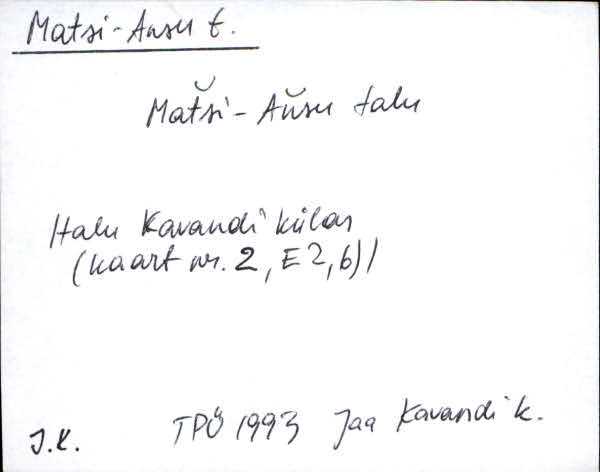 Matsi-Ansu t.
Mat̆si-Ańsu talu
/talu Kavandi külas
(kaart nr. 2, E2, 6)/
J.K. TPÜ 1993 Jaa Kavandi k.